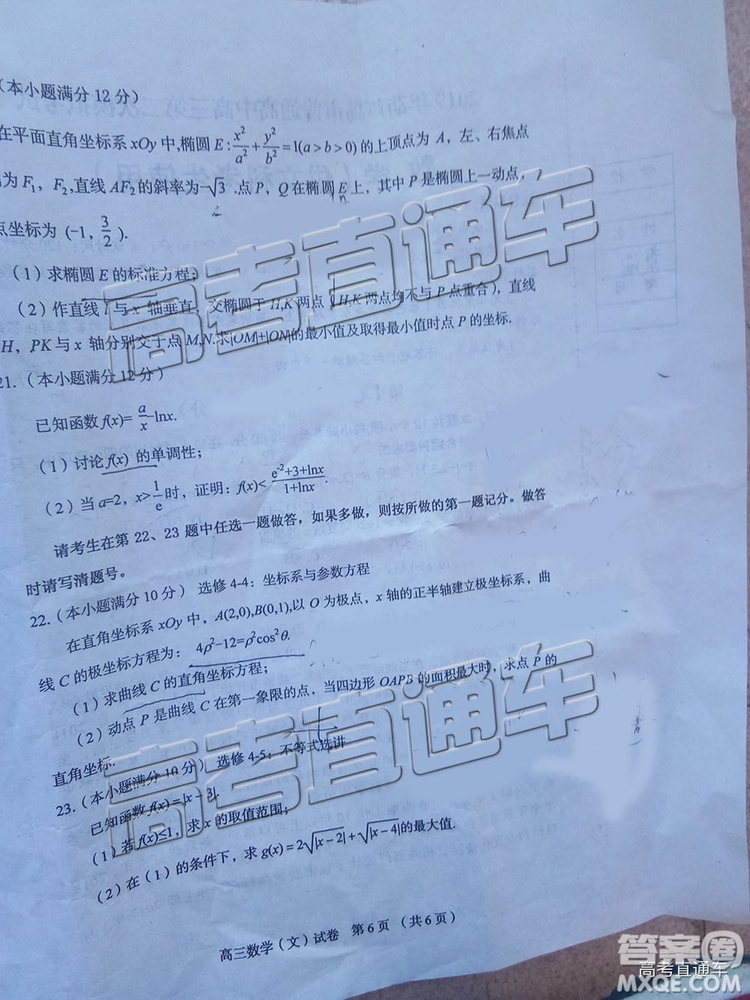 （本小题满分12分）
在平面直角坐标系xOy中,椭圆E:x²/a²+y²/b²=1(a>b>0)的上顶点为A，左、右焦点
为F₁，F₂,直线AF₂的斜率为-√3.点P，Q在椭圆E上，其中P是椭圆上一动点,
点坐标为(-1, 3/2).
（1）求椭圆E的标准方程；
（2）作直线l与x轴垂直，交椭圆于H,K两点（H,K两点均不与P点重合），直线
H，PK与x轴分别交于点M,N.求|OM|+|ON|的最小值及取得最小值时点P的坐标.
21.（本小题满分12分）
已知函数f(x)= a/x -lnx.
（1）讨论f(x)的单调性；
（2）当a=2，x>1/e时，证明：f(x)< (e⁻²+3+lnx)/(1+lnx).
请考生在第22、23题中任选一题做答，如果多做，则按所做的第一题记分。做答
时请写清题号。
22.（本小题满分10分）选修4-4：坐标系与参数方程
在直角坐标系xOy中，A(2,0),B(0,1),以O为极点，x轴的正半轴建立极坐标系，曲
线C的极坐标方程为：4ρ²-12=ρ²cos²θ.
（1）求曲线C的直角坐标方程；
（2）动点P是曲线C在第一象限的点，当四边形OAPB的面积最大时，求点P的
直角坐标.
23.（本小题满分10分）选修4-5：不等式选讲
已知函数f(x)=|x-3|.
（1）若f(x)≤1，求x的取值范围；
（2）在（1）的条件下，求g(x)=2√|x-2|+√|x-4|的最大值.
高三数学（文）试卷 第6页（共6页）
高考直通车
高考直通车
答案圈
高考直通车
MXQE.COM